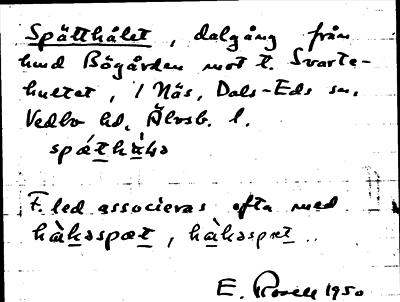 Spätthålet, dalgång från
lund Bögården mot t. Svarte-
hultet, 1 Näs, Dals-Eds sn.
Vedbo hd, Älvsb. l.
spæ̀thå̀lə
F. led associeras ofta med
hà̀kəspæt, hàkəspæt..
E. Rosell 1950